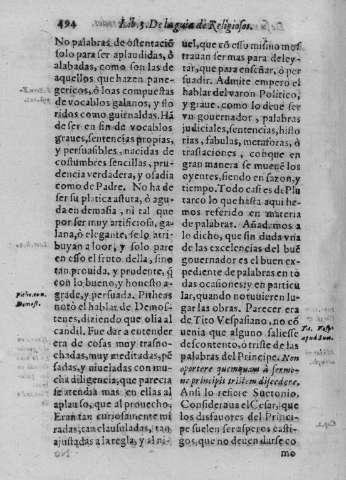 494 Lib. 5. De la guia de Religiosos.
No palabras de ostentació
solo para ser aplaudidas, ò
alabadas, como son las de
aquellos que hazen pane-
gericos, ò loas compuestas
de vocablos galanos, y flo
ridos como guirnaldas. Hã
de ser en fin de vocablos
graues, sentencias propias,
y persuasibles, nacidas de
costumbres sencillas, pru-
dencia verdadera, y osadia
como de Padre. No ha de
ser su platica astuta, ò agu-
da en demasia, ni tal que
por ser muy artificiosa, ga-
lana, ò elegante, se lo atri-
buyan a loor, y solo pare
en esso el fruto della, sino
tan prouida, y prudente, q̃
con lo bueno, y honesto a-
grade, y persuada. Pitheas
notò el hablar de Demos-
tenes, diziendo que olia al
candil. Fue dar a entender
era de cosas muy trasno-
chadas, muy meditadas, pē-
sadas, y niueladas con mu-
cha diligencia, que parecia
se atendia mas en ellas al
aplauso, que al prouecho.
Eran tan curiosamente mi
radas, tan clausuladas, tan
ajustadas a la regla, y al ni-
Pithe. con.
Demost.
uel, que cō esso mismo mos
trauan ser mas para deley-
tar, que para enseñar, ò per
suadir. Admite empero el
hablar del varon Politico,
y graue, como lo deue ser
vn gouernador, palabras
judiciales, sentencias, histo
rias, fabulas, metaforas, ò
traslaciones, conque en
gran manera se mueuē los
oyentes, siendo en sazon, y
tiempo. Todo casi es de Plu
tarco lo que hasta aqui he-
mos referido en materia
de palabras. Añadamos a
lo dicho, que sin duda vna
de las excelencias del buē
gouernador es el buen ex-
pediente de palabras en to
das ocasiones; y en particu
lar, quando no tuuieren lu-
gar las obras. Parecer era
de Tito Vespasiano, no cō
uenia que alguno saliesse
descontento, ò triste de las
palabras del Principe. Non
oportere quemquam à sermo-
ne principis tristem discedere.
Ansi lo refiere Suetonio.
Consideraua el Cesar, que
los disfauores del Princi-
pe suelen ser asperos casti-
gos, que no deuen darse co
mo
Tit. Vesp.
apud Suet.